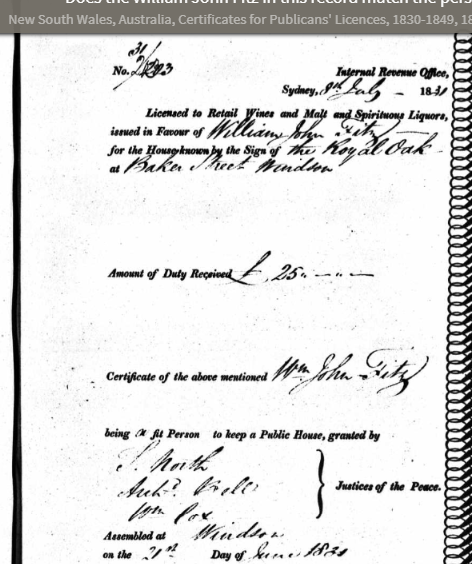 Does the William John Fitz in this record match the pers
New South Wales, Australia, Certificates for Publicans' Licences, 1830-1849, 18
31/
No. 293
Internal Revenue Office,
Sydney, 9th July - 1831
Licensed to Retail Wines and Malt and Spirituous Liquors,
issued in Favour of William John Fitz
for the House known by the Sign of the Royal Oak -
at Baker Street Windsor
Amount of Duty Received £ 25 " - " -
Certificate of the above mentioned Wm John Fitz
being a fit Person to keep a Public House, granted by
S. North
Archd. Bell
Wm Cox
Justices of the Peace.
Assembled at Windsor
on the 21st Day of June 1831